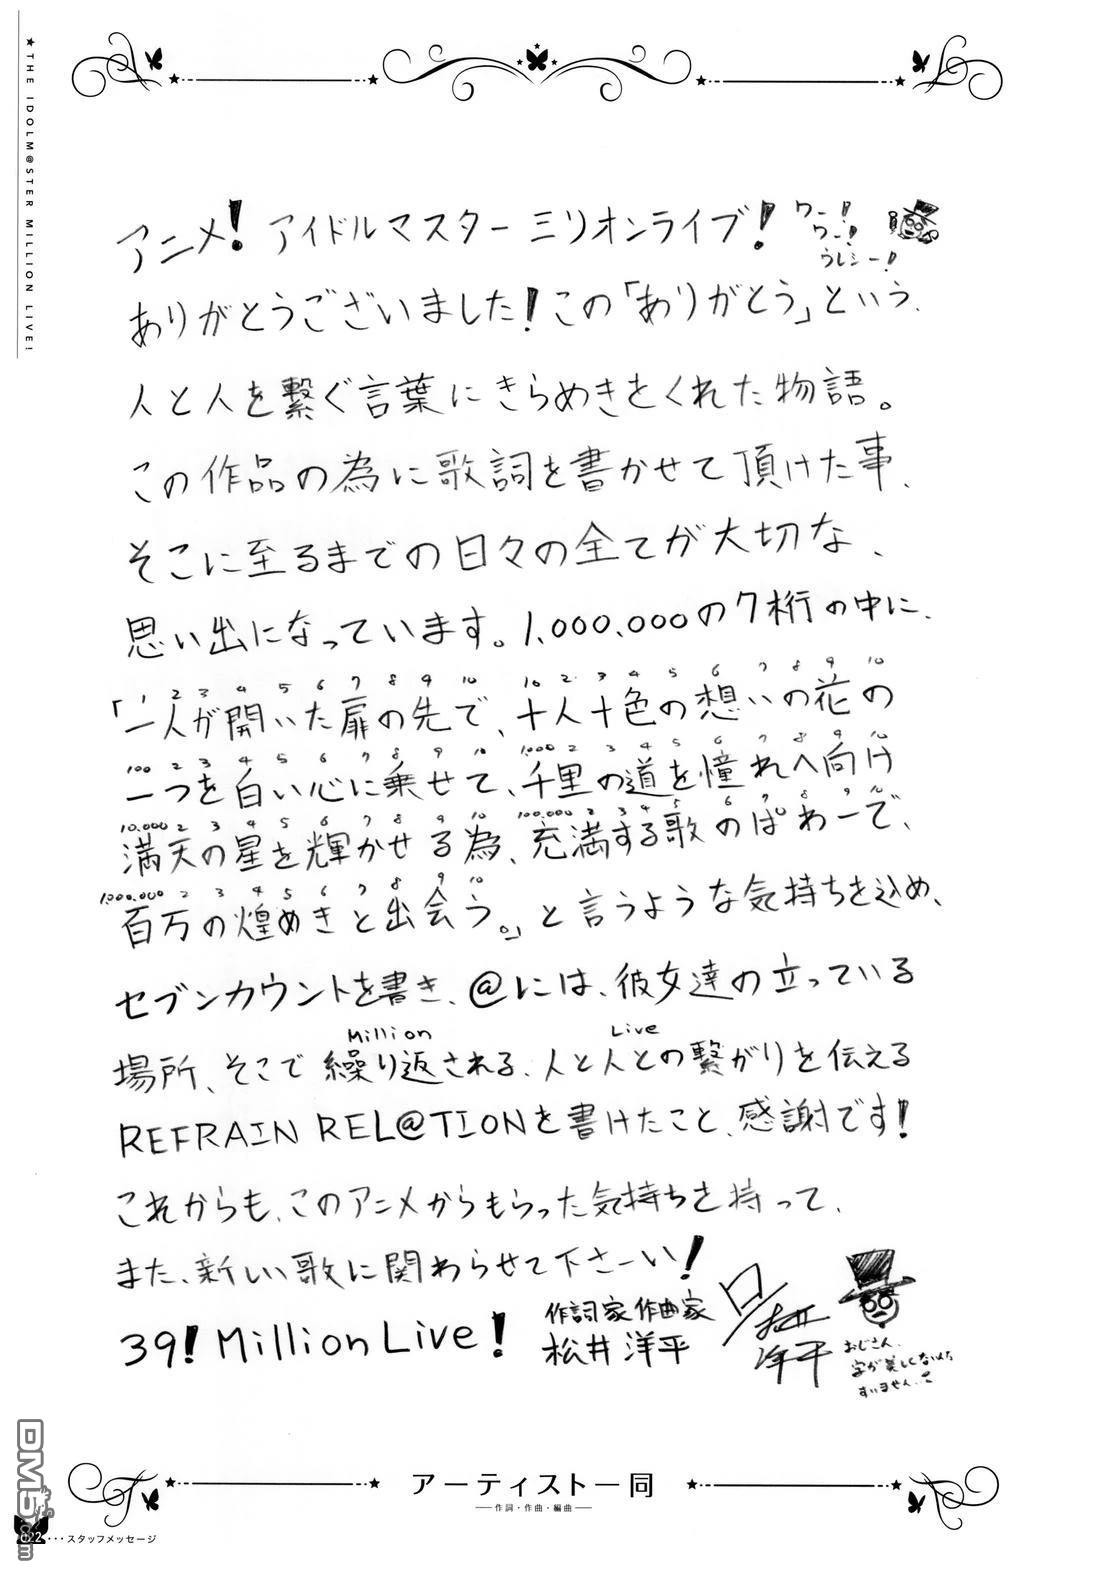 ★THE IDOLM@STER MILLION LIVE!
アニメ! アイドルマスター ミリオンライブ!
ワー!
ワー!
ウレシー!
ありがとうございました!この「ありがとう」という、
人と人を繋ぐ言葉にきらめきをくれた物語。
この作品の為に歌詞を書かせて頂けた事、
そこに至るまでの日々の全てが大切な、
思い出になっています。1,000,000の7桁の中に、
1 2 3 4 5 6 7 8 9 10 10 2 3 4 5 6 7 8 9 10
「一人が開いた扉の先で、十人十色の想いの花の
100 2 3 4 5 6 7 8 9 10 1,000 2 3 4 5 6 7 8 9 10
一つを白い心に乗せて、千里の道を憧れへ向け
10,000 2 3 4 5 6 7 8 9 10 100,000 2 3 4 5 6 7 8 9 10
満天の星を輝かせる為、充満する歌のぱわーで、
1,000,000 2 3 4 5 6 7 8 9 10
百万の煌めきと出会う。」と言うような気持ちを込め、
セブンカウントを書き、@には、彼女達の立っている
Million Live
場所、そこで繰り返される、人と人との繋がりを伝える
REFRAIN REL@TIONを書けたこと、感謝です!
これからも、このアニメからもらった気持ちを持って、
また、新しい歌に関わらせて下さーい!
39! Million Live!
作詞家 作曲家
松井 洋平
松井
洋平
おじさん、
字が美しくないんで
すいません..
アーティスト一同
作詞・作曲・編曲
022・・・スタッフメッセージ